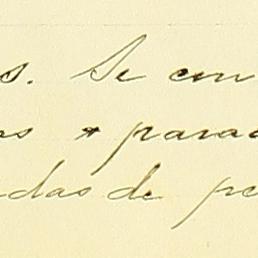 s. Se con
os & para
das de pe